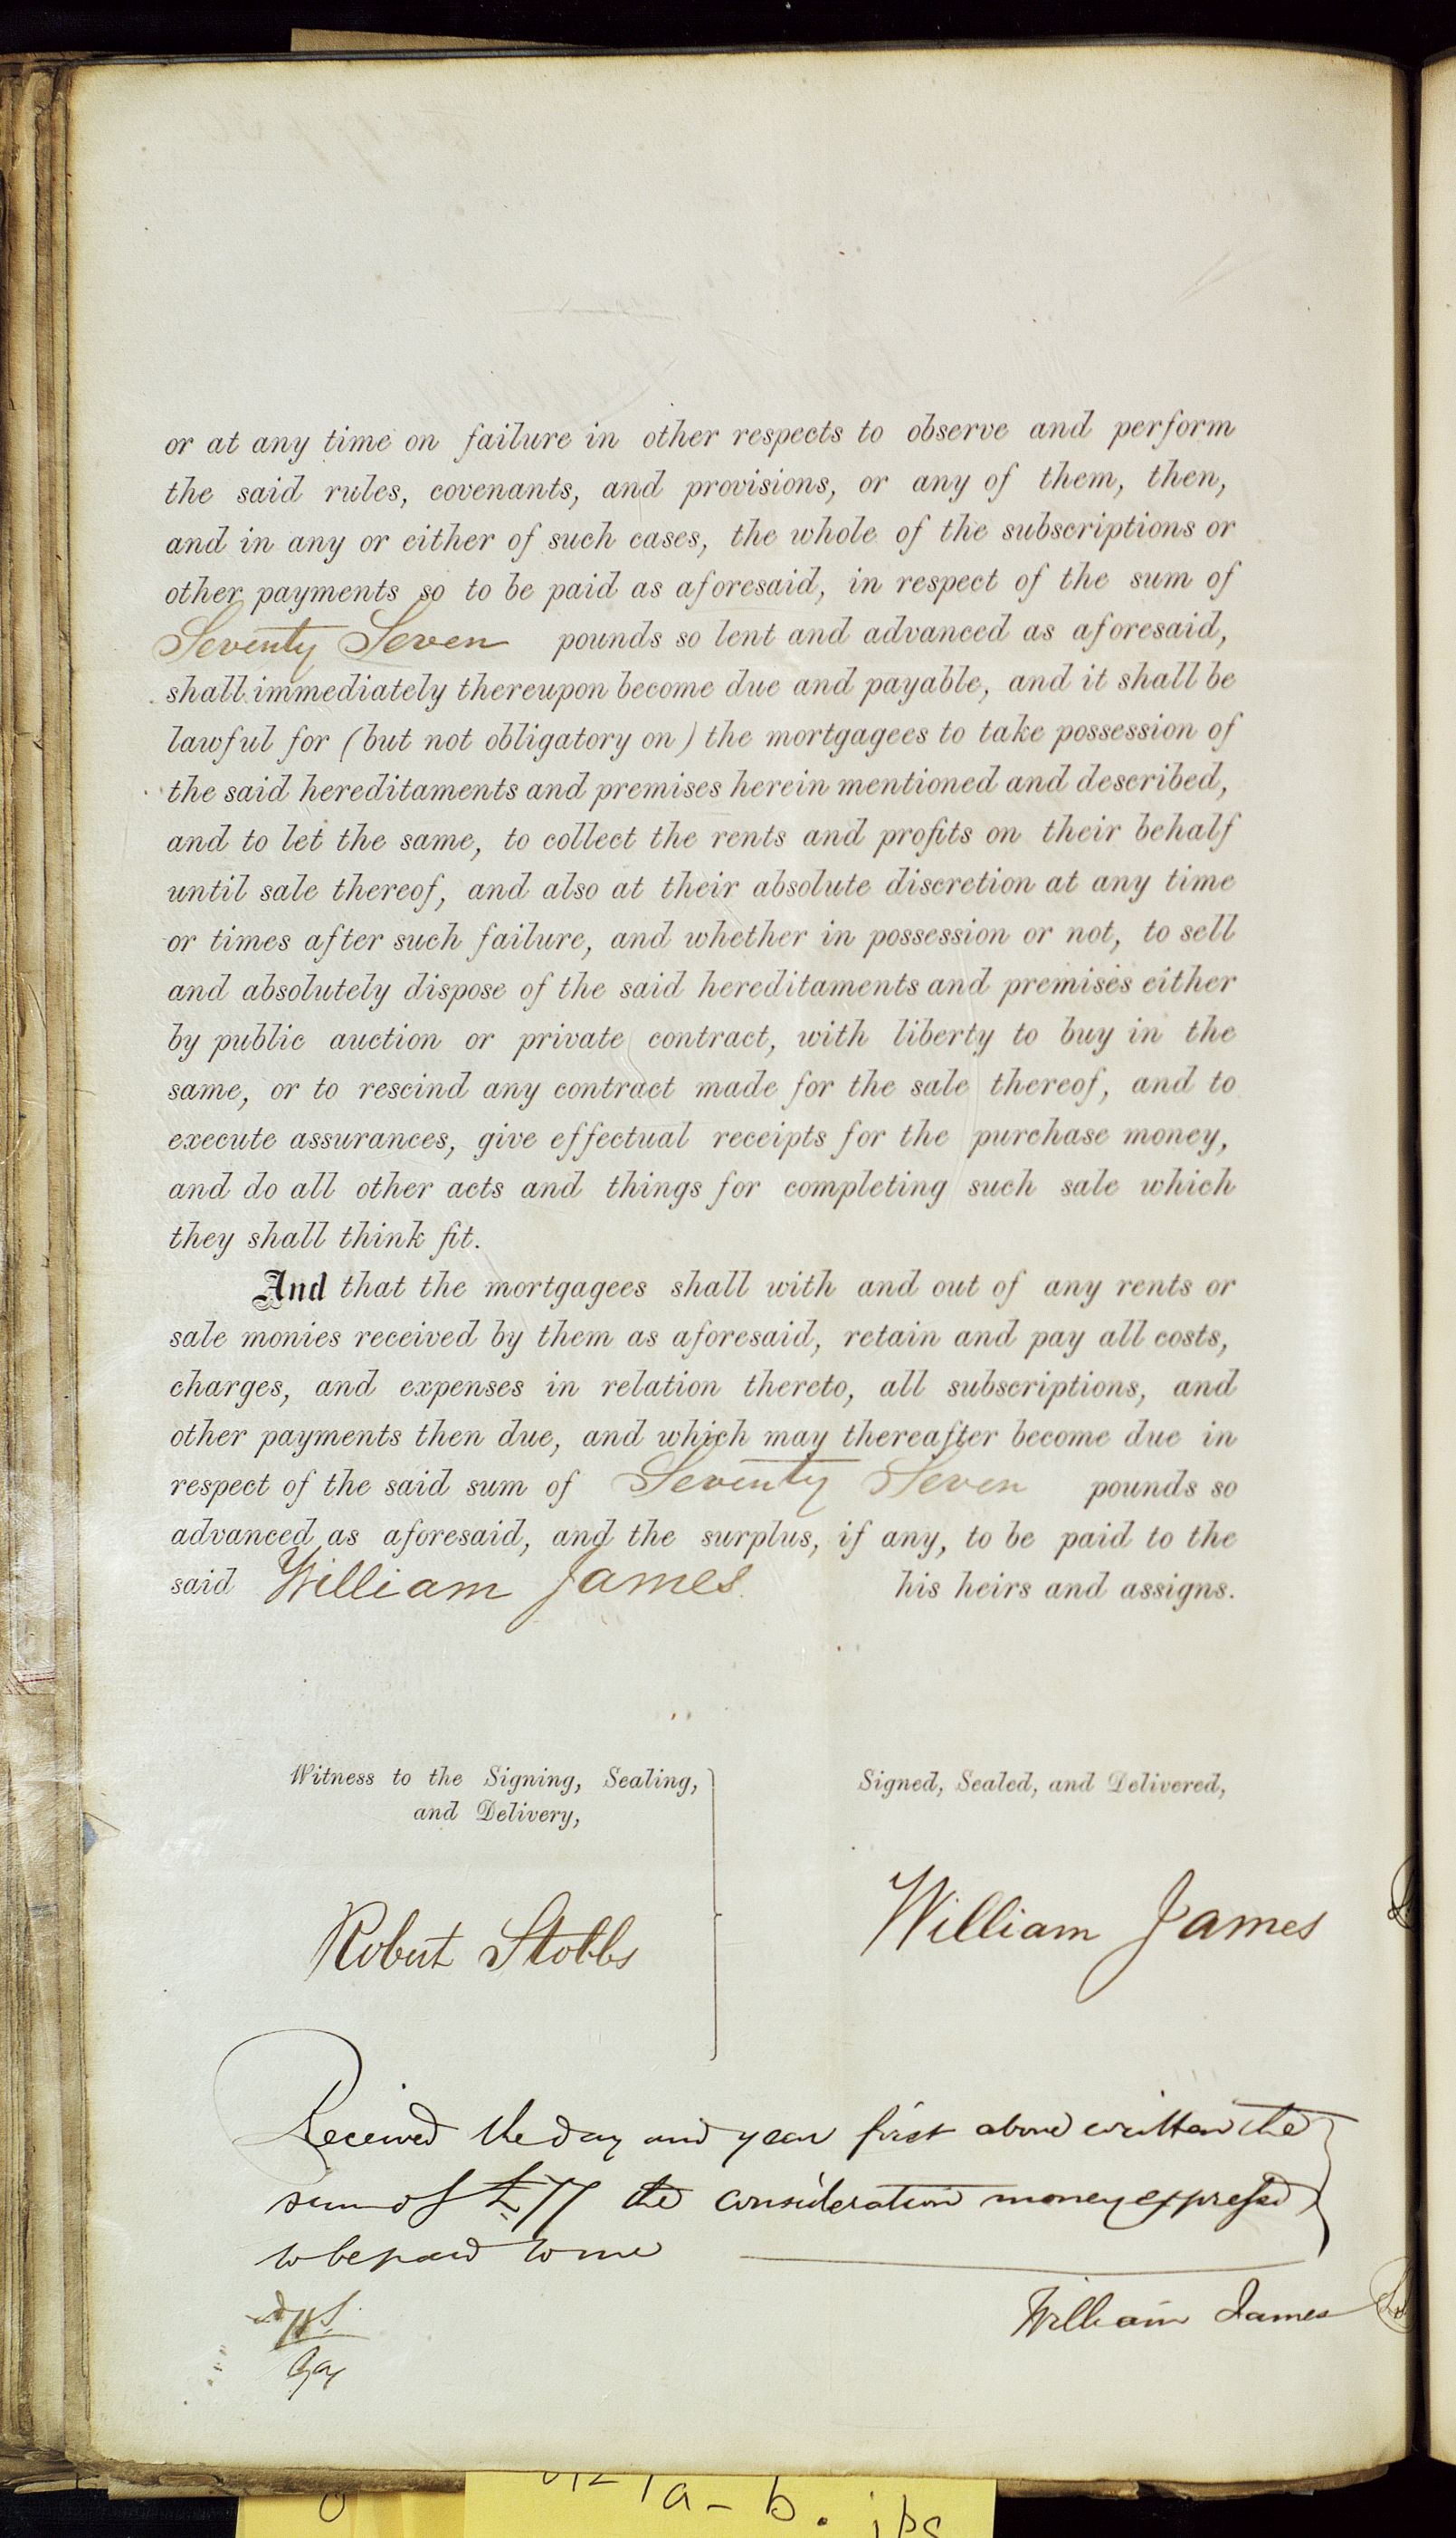 or at any time on failure in other respects to observe and perform
the said rules, covenants, and provisions, or any of them, then,
and in any or either of such cases, the whole of the subscriptions or
other payments so to be paid as aforesaid, in respect of the sum of
Seventy Seven pounds so lent and advanced as aforesaid,
shall immediately thereupon become due and payable, and it shall be
lawful for (but not obligatory on) the mortgagees to take possession of
the said hereditaments and premises herein mentioned and described,
and to let the same, to collect the rents and profits on their behalf
until sale thereof, and also at their absolute discretion at any time
or times after such failure, and whether in possession or not, to sell
and absolutely dispose of the said hereditaments and premises either
by public auction or private contract, with liberty to buy in the
same, or to rescind any contract made for the sale thereof, and to
execute assurances, give effectual receipts for the purchase money,
and do all other acts and things for completing such sale which
they shall think fit.
And that the mortgagees shall with and out of any rents or
sale monies received by them as aforesaid, retain and pay all costs,
charges, and expenses in relation thereto, all subscriptions, and
other payments then due, and which may thereafter become due in
respect of the said sum of Seventy Seven pounds so
advanced as aforesaid, and the surplus, if any, to be paid to the
said William James his heirs and assigns.
Witness to the Signing, Sealing,
and Delivery,
Signed, Sealed, and Delivered,
Robert Stobbs
William James
Received the day and year first above written the
sum of £77 the consideration money expressed
to be paid to me
William James
a-b.